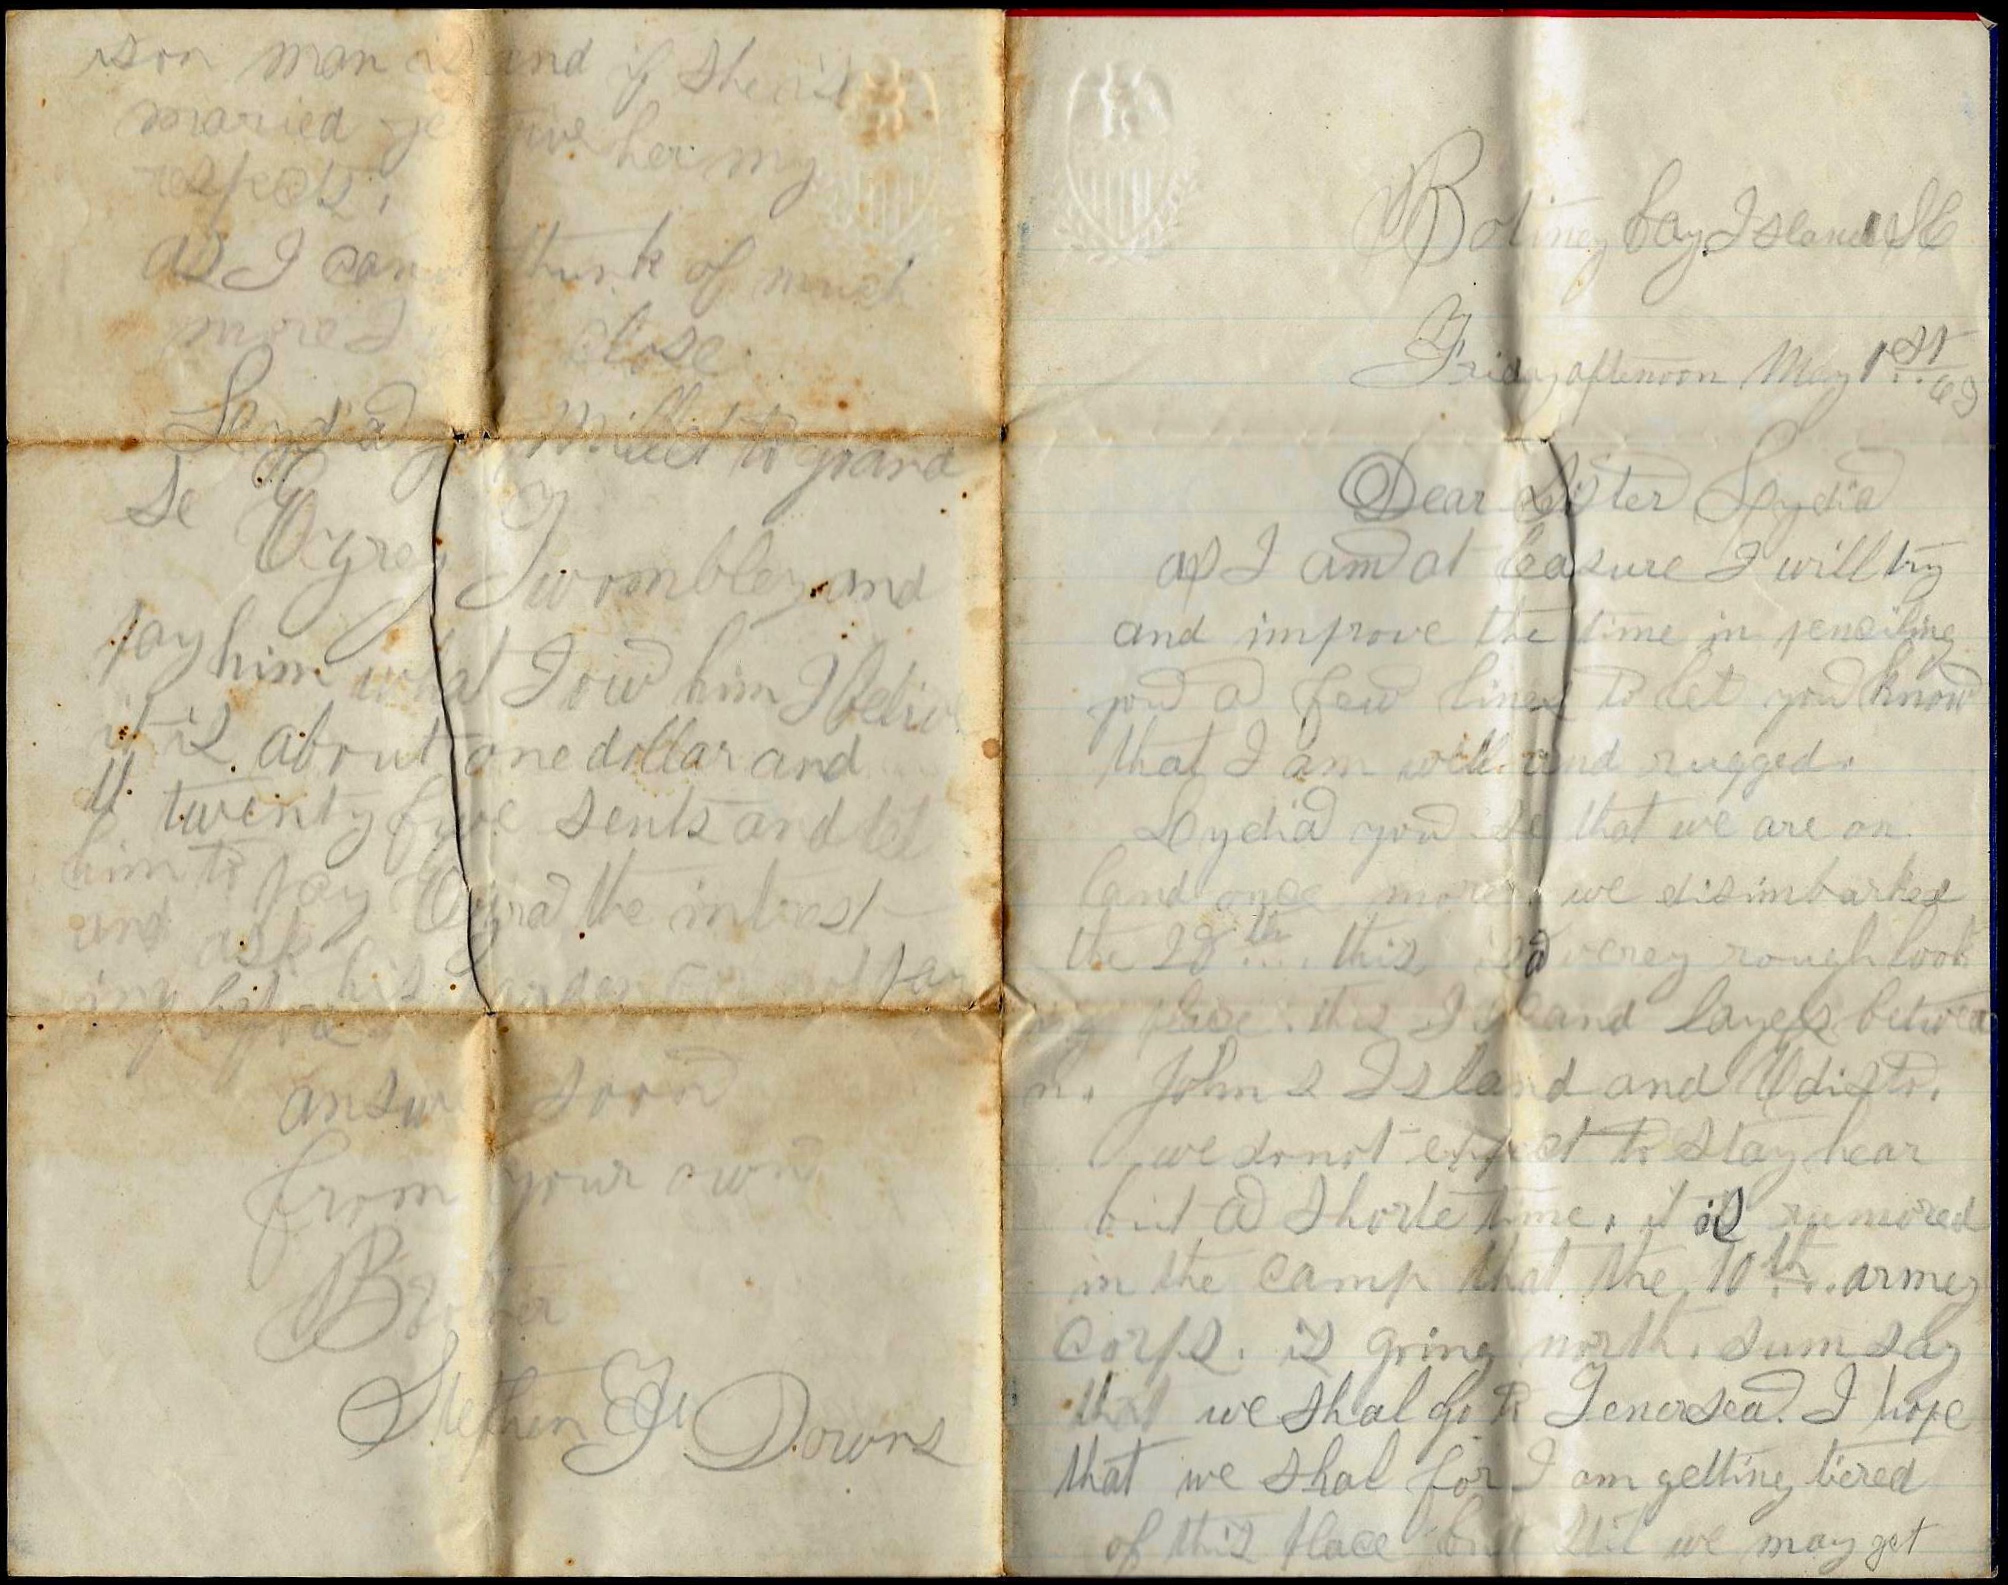 Botiney bay Island SC
Friday afternoon May 1st 63
Dear Sister Lydia
as I am at leasure I will try
and improve the time in penciling
you a few lines to let you know
that I am well and rugged.
Lydia you se that we are on
land once more. we disimbarked
the 28th this is a verey rough look
ing place. this Island layes betwea
n. Johns Island and Edisto.
we donot expect to stay hear
but a shorte time. it is rumored
in the camp that the 10th armey
corps. is going north. sum say
that we shal go to Tenersea. I hope
that we shal for I am getting tiered
of this place but still we may get
son man is and if she is
maried give her my
respects.
as I can think of much
more close.
Lydia I to grand
se Twombley and
pay him what I ow him I belive
it is about one dollar and
twenty five sents and tell
him to pay the intrest
and ask
ing before his
answer soon
from your own
Brother
Stephen Downs